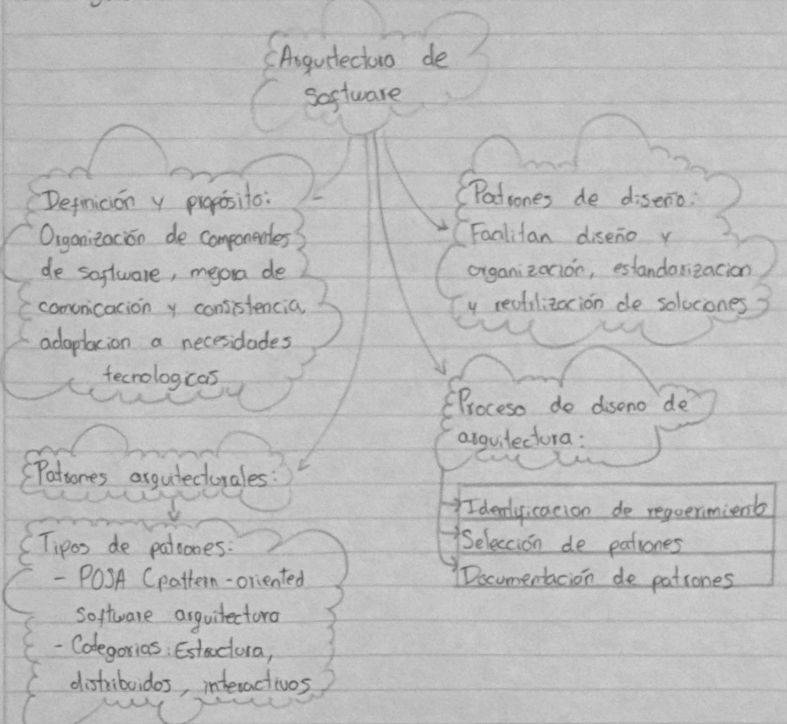 Arquitectura de
Software
Definición y propósito:
Organización de componentes
de software, mejora de
comunicación y consistencia
adaptacion a necesidades
tecnologicas
Patrones de diseño:
Facilitan diseño y
organización, estandarizacion
y reutilización de soluciones
Proceso de diseno de
arquitectura:
Identificacion de requerimiento
Selección de patrones
Documentación de patrones
Patrones arquitecturales:
Tipos de patrones:
- POSA (pattern-oriented
software arquitectura
- Categorias: Estructura,
distribuidos, interactivos